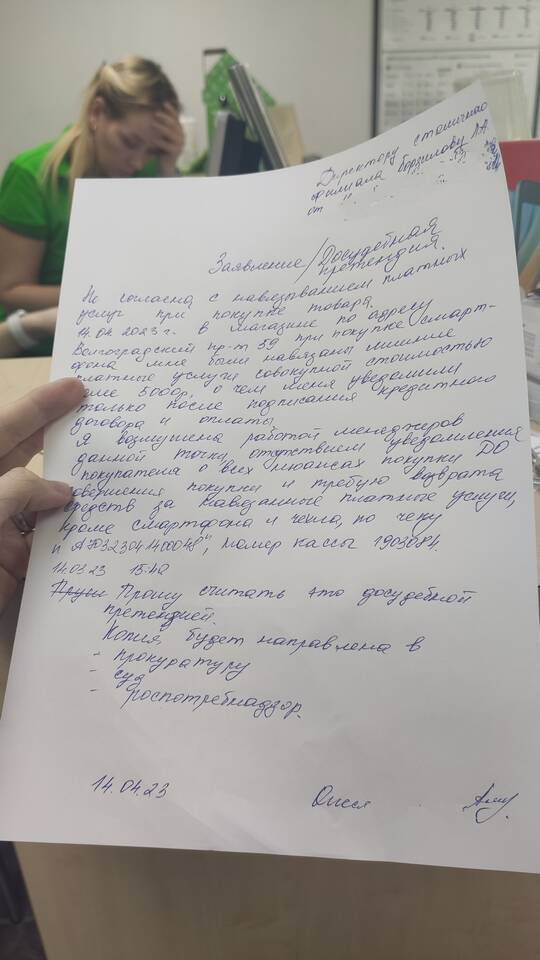 Директору столичного
филиала Борзилову Л.А.
от
Заявление/Досудебная
претензия.
Не согласна с навязыванием платных
услуг при покупке товара.
14.04.2023 г. в магазине по адресу
Волгоградский пр-т 59 при покупке смарт-
фона мне были навязаны лишние
платные услуги совокупной стоимостью
5000р, о чем меня уведомили
только после подписания кредитного
договора и оплаты.
Я возмущена работой менеджеров
данной точки, отсутствием уведомления
покупателя о всех нюансах покупки ДО
совершения покупки и требую возврата
средств за навязанные платные услуги,
кроме смартфона и чехла, по чеку
номер кассы 1903084.
14.03.23 15:42
Прошу считать это досудебной
претензией.
Копия будет направлена в
- прокуратуру
- суд
- роспотребнадзор.
14.04.23